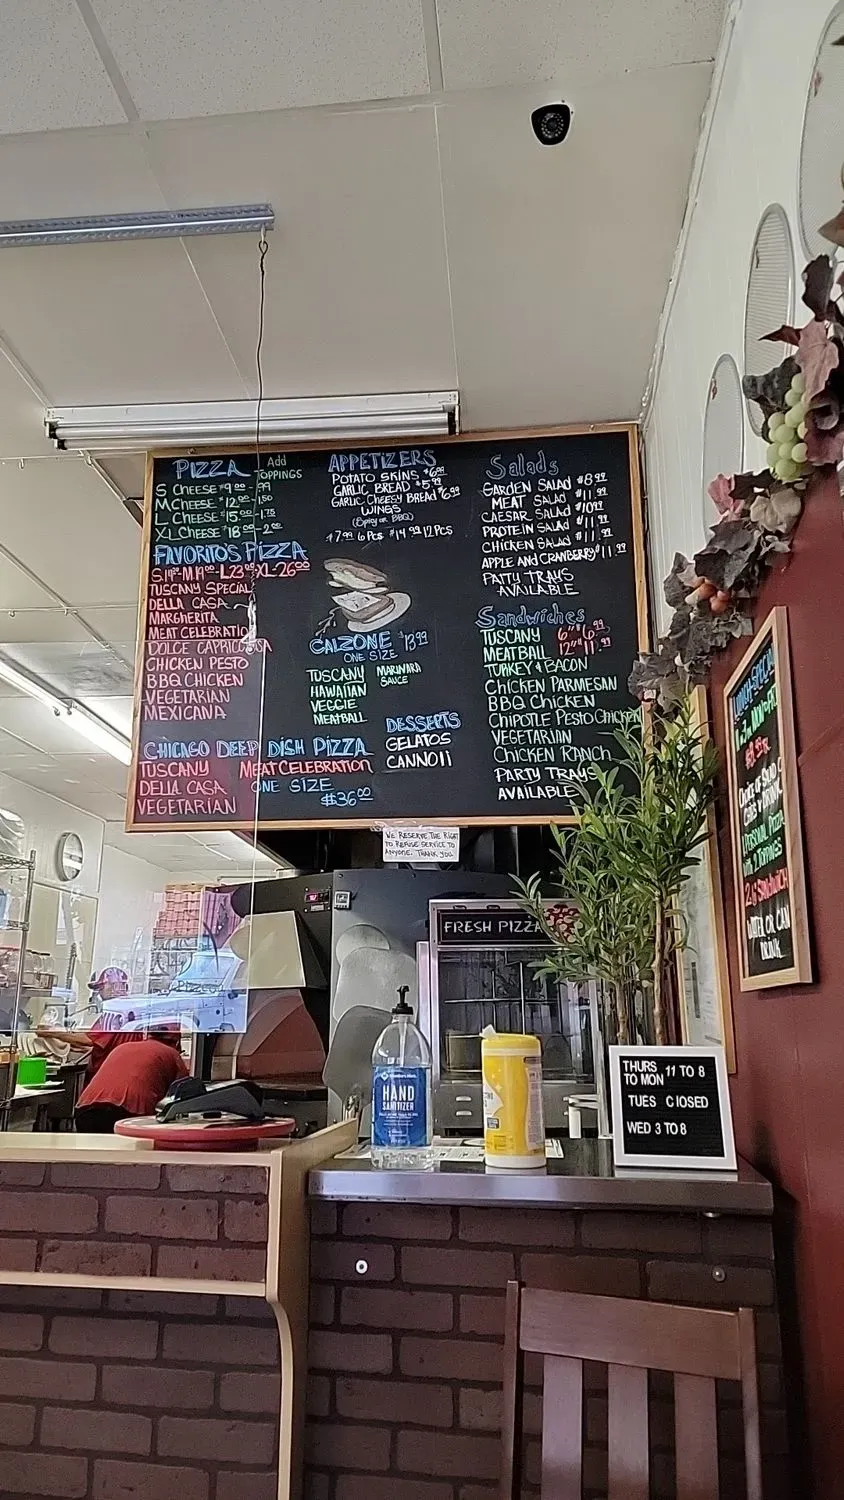 PIZZA Add TOPPINGS
S CHEESE $9.00 - .99
M CHEESE $12.00 - 1.50
L CHEESE $15.00 - 1.75
XL CHEESE $18.00 - 2.00
FAVORITO'S PIZZA
XL-26.00
TUSCANY SPECIAL
DELLA CASA
MARGHERITA
MEAT CELEBRATIO
DOLCE CAPRICCOSA
CHICKEN PESTO
BBQ CHICKEN
VEGETARIAN
MEXICANA
CHICAGO DEEP DISH PIZZA
TUSCANY MEAT CELEBRATION
DELLA CASA ONE SIZE
VEGETARIAN $36.00
APPETIZERS
POTATO SKINS $6.99
GARLIC BREAD $5.99
GARLIC CHEESY BREAD $6.99
WINGS
(Spicy or BBQ)
$7.99 6 PCS $14.99 12 PCS
CALZONE $13.99
ONE SIZE
TUSCANY MARINARA
HAWAIIAN SAUCE
VEGGIE
MEATBALL
DESSERTS
GELATOS
CANNOLI
Salads
GARDEN SALAD $8.99
MEAT SALAD $11.99
CAESAR SALAD $10.99
PROTEIN SALAD $11.99
CHICKEN SALAD $11.99
APPLE AND CRANBERRY $11.99
PATTY TRAYS
AVAILABLE
Sandwiches
TUSCANY 6" $6.99
MEATBALL 12" $11.99
TURKEY & BACON
CHICKEN PARMESAN
BBQ CHICKEN
CHIPOTLE PESTO CHICKEN
VEGETARIAN
CHICKEN RANCH
PARTY TRAYS
AVAILABLE
WE RESERVE THE RIGHT
TO REFUSE SERVICE TO
ANYONE. THANK YOU
FRESH PIZZA
HAND
SANITIZER
THURS 11 TO 8
TO MON
TUES CLOSED
WED 3 TO 8
LUNCH SPECIAL
1 PERSONAL PIZZA
with 2 TOPPINGS
SANDWICH
WATER OR CAN
DRINK